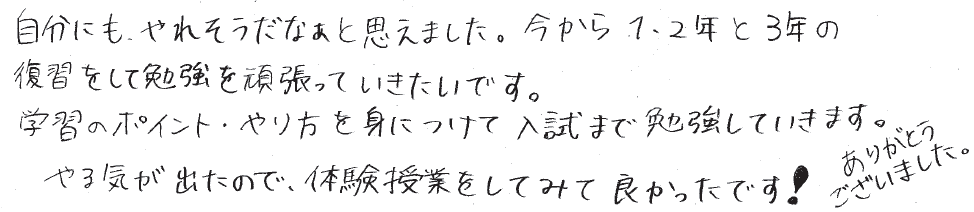 自分にも、やれそうだなぁと思えました。今から1、2年と3年の
復習をして勉強を頑張っていきたいです。
学習のポイント・やり方を身につけて入試まで勉強していきます。
やる気が出たので、体験授業をしてみて良かったです！
ありがとう
ございました。